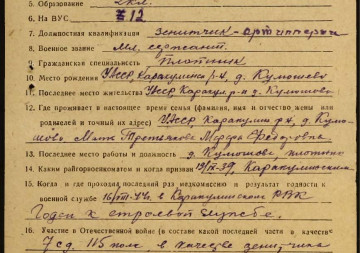 5. Образование 2 кл.
6. На ВУС № 12
7. Должностная квалификация зенитчик-артиллерист
8. Военное звание Мл. сержант
9. Гражданская специальность Плотник
10. Место рождения УАССР, Каракулинск. р-н, д. Кулюшево
11. Последнее место жительства УАССР Каракул. р-н д. Кулюшево
12. Где проживает в настоящее время семья (фамилия, имя и отчество жены или
родителей и точный их адрес) УАССР Каракулин р-н, д. Кулю-
шево, Мать Третьякова Федоровна
13. Последнее место работы и должность д. Кулюшево, плотник
14. Каким райгорвоенкоматом и когда призван Каракулинским
15. Когда и где проходил последний раз медкомиссию и результат годности к
военной службе в Каракулинском РВК
Годен к строевой службе.
16. Участие в Отечественной войне (в составе какой последней части и в качестве
7 с.д. 115 полк, в качестве зенитчика